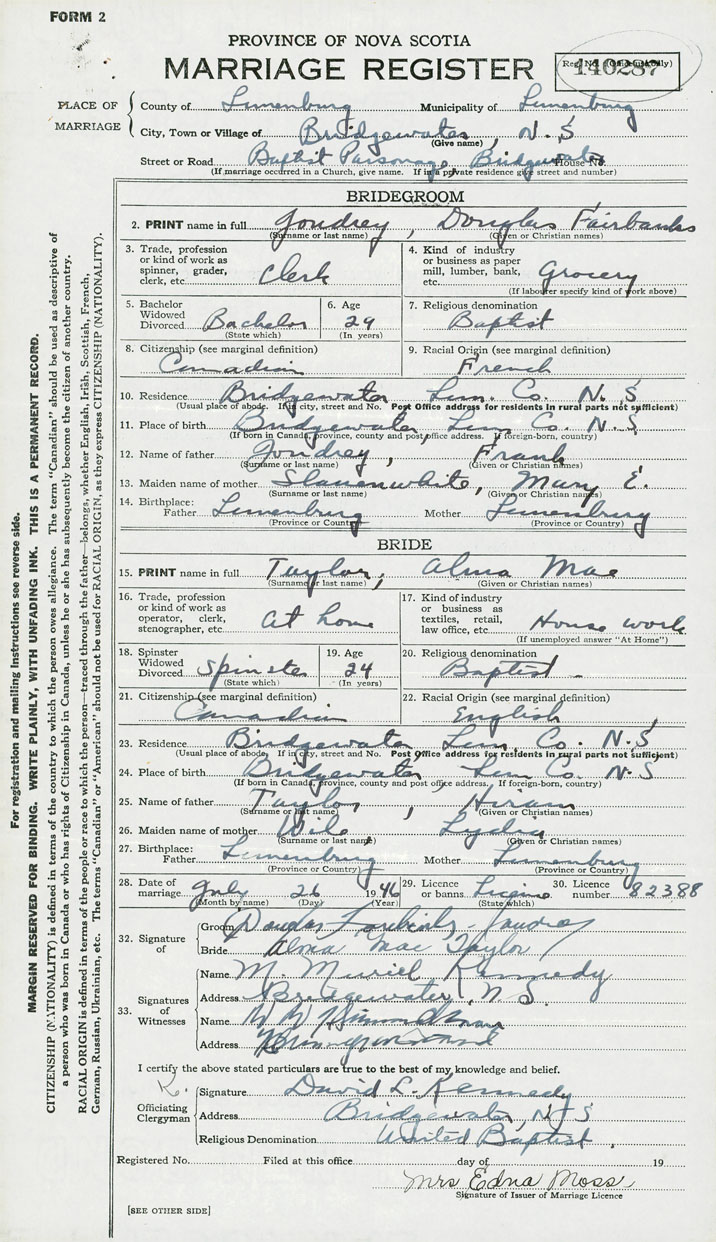 FORM 2
PROVINCE OF NOVA SCOTIA
MARRIAGE REGISTER
140287
PLACE OF MARRIAGE
County of Lunenburg Municipality of Lunenburg
City, Town or Village of Bridgewater, N. S
(Give name)
Street or Road Baptist Parsonage, Bridgewater House No.
(If marriage occurred in a Church, give name. If in a private residence give street and number)
BRIDEGROOM
2. PRINT name in full Joudrey, Douglas Fairbanks
(Surname or last name) (Given or Christian names)
3. Trade, profession or kind of work as spinner, grader, clerk, etc. Clerk
4. Kind of industry or business as paper mill, lumber, bank, etc. Grocery
(If laborer specify kind of work above)
5. Bachelor Widowed Divorced Bachelor
(State which)
6. Age 29
(In years)
7. Religious denomination Baptist
8. Citizenship (see marginal definition) Canadian
9. Racial Origin (see marginal definition) French
10. Residence Bridgewater Lun. Co. N. S
(Usual place of abode. If in city, street and No. Post Office address for residents in rural parts not sufficient)
11. Place of birth Bridgewater Lun Co. N. S
(If born in Canada, province, county and post office address. If foreign-born, country)
12. Name of father Joudrey, Frank
(Surname or last name) (Given or Christian names)
13. Maiden name of mother Slauenwhite, Mary E.
(Surname or last name) (Given or Christian names)
14. Birthplace: Father Lunenburg Mother Lunenburg
(Province or Country) (Province or Country)
BRIDE
15. PRINT name in full Taylor, Alma Mae
(Surname or last name) (Given or Christian names)
16. Trade, profession or kind of work as operator, clerk, stenographer, etc. at home
17. Kind of industry or business as textiles, retail, law office, etc. House work
(If unemployed answer "At Home")
18. Spinster Widowed Divorced Spinster
(State which)
19. Age 24
(In years)
20. Religious denomination Baptist
21. Citizenship (see marginal definition) Canadian
22. Racial Origin (see marginal definition) English
23. Residence Bridgewater Lun Co. N. S
(Usual place of abode. If in city, street and No. Post Office address for residents in rural parts not sufficient)
24. Place of birth Bridgewater Lun Co. N. S
(If born in Canada, province, county and post office address. If foreign-born, country)
25. Name of father Taylor, Hiram
(Surname or last name) (Given or Christian names)
26. Maiden name of mother Wile Lydia
(Surname or last name) (Given or Christian names)
27. Birthplace: Father Lunenburg Mother Lunenburg
(Province or Country) (Province or Country)
28. Date of marriage July 26 1946
(Month by name) (Day) (Year)
29. Licence or banns License
(State which)
30. Licence number 82388
32. Signature of
Groom Joudrey
Bride Alma Mae Taylor
33. Signatures of Witnesses
Name M. Muriel Kennedy
Address Bridgewater, N. S.
Name
Address
I certify the above stated particulars are true to the best of my knowledge and belief.
K.
Officiating Clergyman
Signature David L. Kennedy
Address Bridgewater, N. S
Religious Denomination United Baptist.
Registered No. Filed at this office day of 19
Mrs Edna Moss
Signature of Issuer of Marriage Licence
[SEE OTHER SIDE]
For registration and mailing instructions see reverse side.
MARGIN RESERVED FOR BINDING. WRITE PLAINLY, WITH UNFADING INK. THIS IS A PERMANENT RECORD.
CITIZENSHIP (NATIONALITY) is defined in terms of the country to which the person owes allegiance. The term "Canadian" should be used as descriptive of
a person who was born in Canada or who has rights of Citizenship in Canada, unless he or she has subsequently become the citizen of another country.
RACIAL ORIGIN is defined in terms of the people or race to which the person—traced through the father—belongs, whether English, Irish, Scottish, French,
German, Russian, Ukrainian, etc. The terms "Canadian" or "American" should not be used for RACIAL ORIGIN, as they express CITIZENSHIP (NATIONALITY).